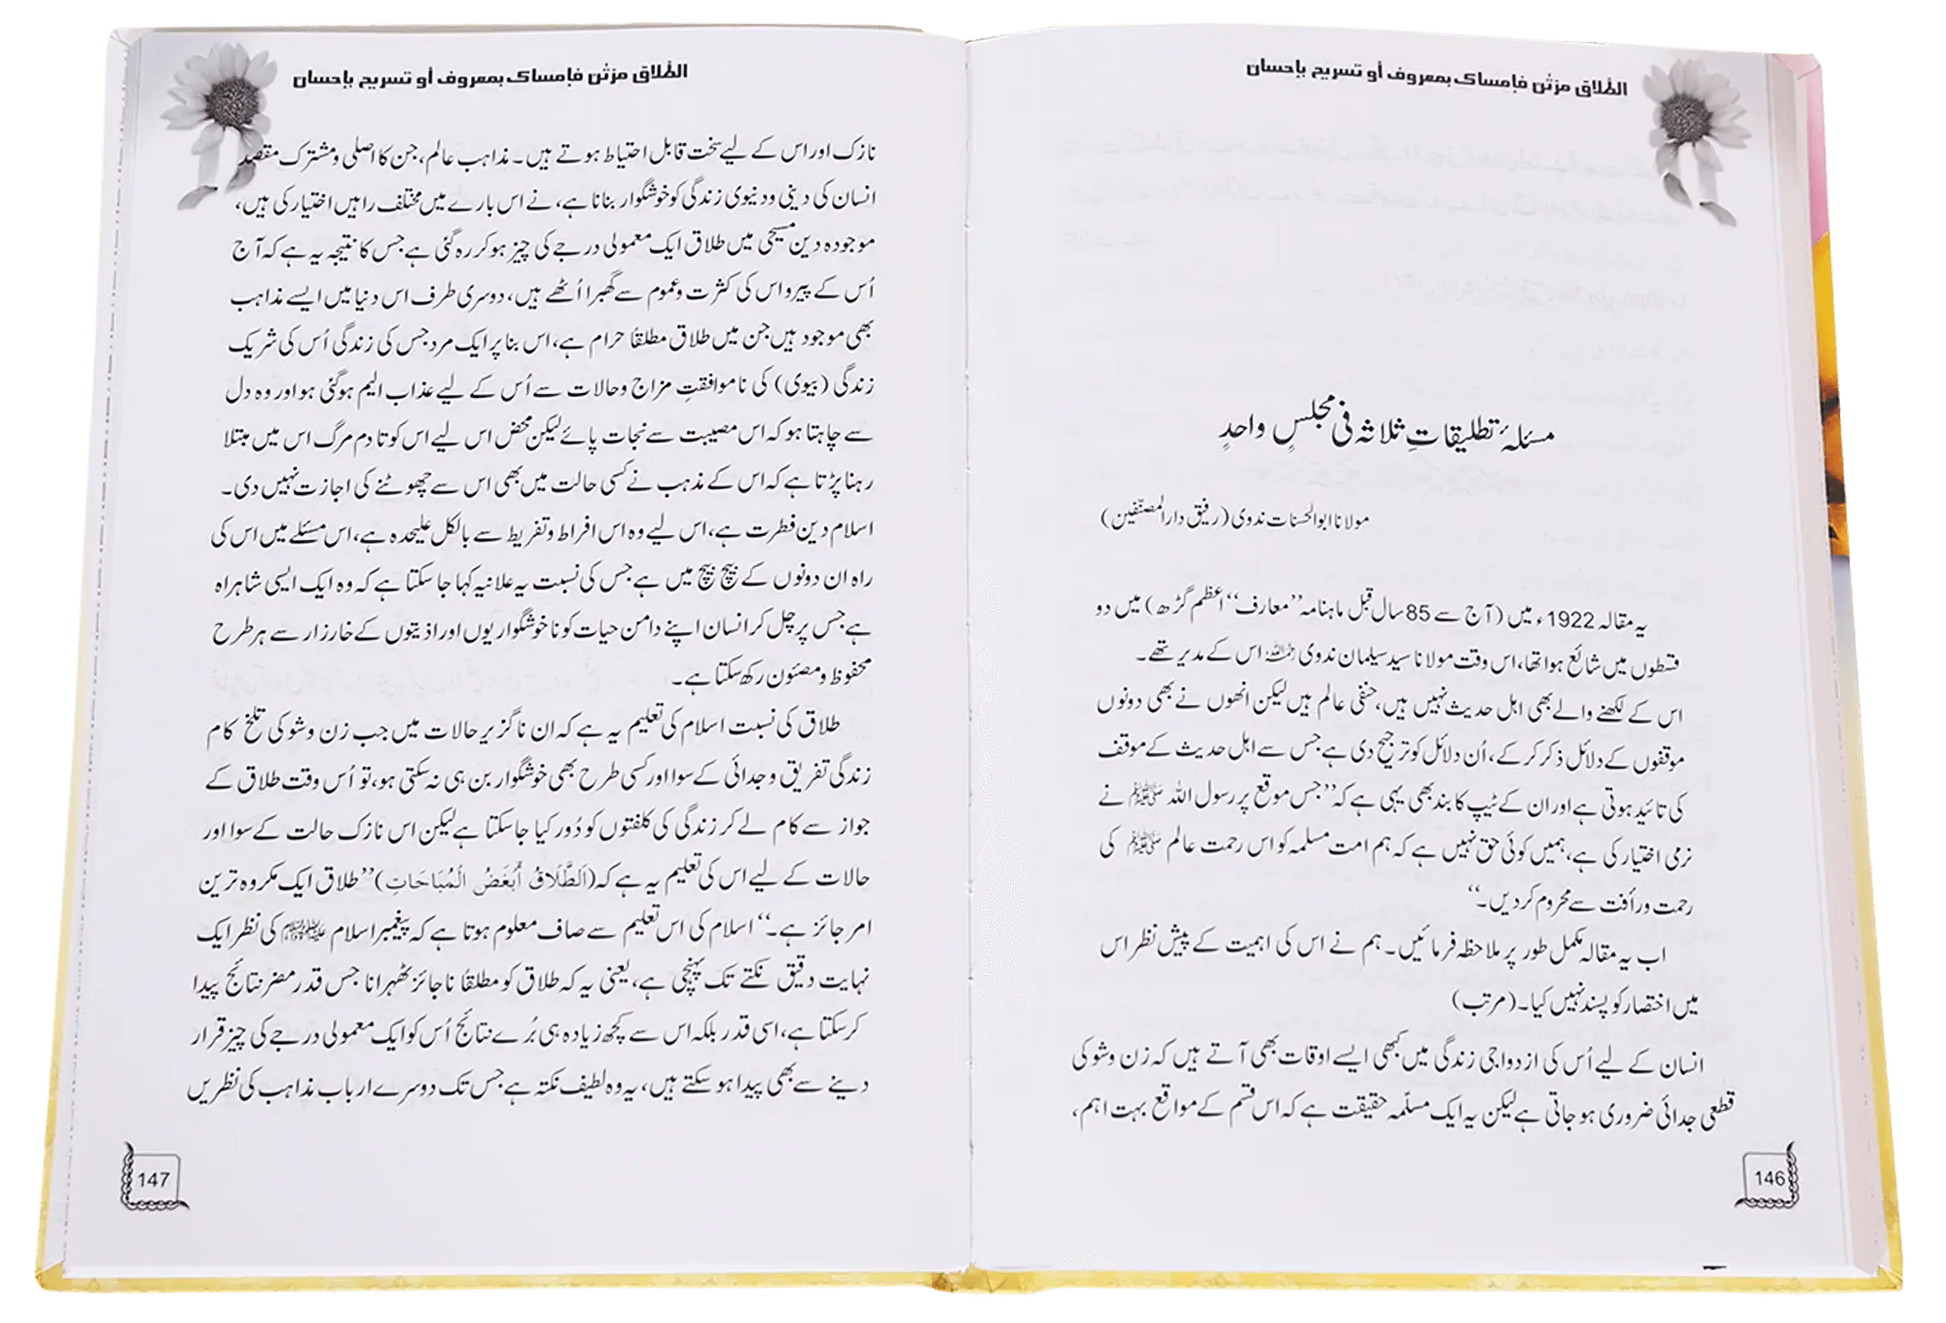 الطلاق مرتٰن فإمساک بمعروف أو تسریح بإحسان
مسئلۂ تطلیقاتِ ثلاثہ فی مجلسٍ واحدٍ
مولانا ابوالحسنات ندوی (رفیق دارالمصنّفین)
یہ مقالہ 1922ء میں (آج سے 85 سال قبل ماہنامہ ’’معارف‘‘ اعظم گڑھ) میں دو
قسطوں میں شائع ہوا تھا، اس وقت مولانا سید سلیمان ندوی رحمہ اللہ اس کے مدیر تھے۔
اس کے لکھنے والے بھی اہل حدیث نہیں ہیں، حنفی عالم ہیں لیکن انھوں نے بھی دونوں
موقفوں کے دلائل ذکر کر کے، اُن دلائل کو ترجیح دی ہے جس سے اہل حدیث کے موقف
کی تائید ہوتی ہے اور ان کے ٹیپ کا بند بھی یہی ہے کہ ’’جس موقع پر رسول اللہ ﷺ نے
نرمی اختیار کی ہے، ہمیں کوئی حق نہیں ہے کہ ہم امت مسلمہ کو اس رحمت عالم ﷺ کی
رحمت ورأفت سے محروم کر دیں۔‘‘
اب یہ مقالہ مکمل طور پر ملاحظہ فرمائیں۔ ہم نے اس کی اہمیت کے پیش نظر اس
میں اختصار کو پسند نہیں کیا۔ (مرتب)
انسان کے لیے اُس کی ازدواجی زندگی میں کبھی ایسے اوقات بھی آتے ہیں کہ زن وشو کی
قطعی جدائی ضروری ہو جاتی ہے لیکن یہ ایک مسلّمہ حقیقت ہے کہ اس قسم کے مواقع بہت اہم،
146
الطلاق مرتٰن فإمساک بمعروف أو تسریح بإحسان
نازک اور اس کے لیے سخت قابل احتیاط ہوتے ہیں۔ مذاہب عالم، جن کا اصلی ومشترک مقصد
انسان کی دینی ودنیوی زندگی کو خوشگوار بنانا ہے، نے اس بارے میں مختلف راہیں اختیار کی ہیں،
موجودہ دین مسیحی میں طلاق ایک معمولی درجے کی چیز ہو کر رہ گئی ہے جس کا نتیجہ یہ ہے کہ آج
اُس کے پیرو اس کی کثرت وعموم سے گھبرا اُٹھے ہیں، دوسری طرف اس دنیا میں ایسے مذاہب
بھی موجود ہیں جن میں طلاق مطلقًا حرام ہے، اس بنا پر ایک مرد جس کی زندگی اُس کی شریک
زندگی (بیوی) کی ناموافقتِ مزاج وحالات سے اُس کے لیے عذاب الیم ہوگئی ہو اور وہ دل
سے چاہتا ہو کہ اس مصیبت سے نجات پائے لیکن محض اس لیے اس کو تادم مرگ اس میں مبتلا
رہنا پڑتا ہے کہ اس کے مذہب نے کسی حالت میں بھی اس سے چھوٹنے کی اجازت نہیں دی۔
اسلام دین فطرت ہے، اس لیے وہ اس افراط وتفریط سے بالکل علیحدہ ہے، اس مسئلے میں اس کی
راہ ان دونوں کے بیچ بیچ میں ہے جس کی نسبت یہ علانیہ کہا جا سکتا ہے کہ وہ ایک ایسی شاہراہ
ہے جس پر چل کر انسان اپنے دامن حیات کو ناخوشگواریوں اور اذیتوں کے خارزار سے ہر طرح
محفوظ ومصئون رکھ سکتا ہے۔
طلاق کی نسبت اسلام کی تعلیم یہ ہے کہ ان ناگزیر حالات میں جب زن وشو کی تلخ کام
زندگی تفریق وجدائی کے سوا اور کسی طرح بھی خوشگوار بن ہی نہ سکتی ہو، تو اُس وقت طلاق کے
جواز سے کام لے کر زندگی کی کلفتوں کو دُور کیا جا سکتا ہے لیکن اس نازک حالت کے سوا اور
حالات کے لیے اس کی تعلیم یہ ہے کہ (اَلطَّلَاقُ أَبْغَضُ الْمُبَاحَاتِ) ’’طلاق ایک مکروہ ترین
امر جائز ہے۔‘‘ اسلام کی اس تعلیم سے صاف معلوم ہوتا ہے کہ پیغمبر اسلام ﷺ کی نظر ایک
نہایت دقیق نکتے تک پہنچی ہے، یعنی یہ کہ طلاق کو مطلقًا ناجائز ٹھہرانا جس قدر مضر نتائج پیدا
کر سکتا ہے، اسی قدر بلکہ اس سے کچھ زیادہ ہی بُرے نتائج اُس کو ایک معمولی درجے کی چیز قرار
دینے سے بھی پیدا ہو سکتے ہیں، یہ وہ لطیف نکتہ ہے جس تک دوسرے ارباب مذاہب کی نظریں
147